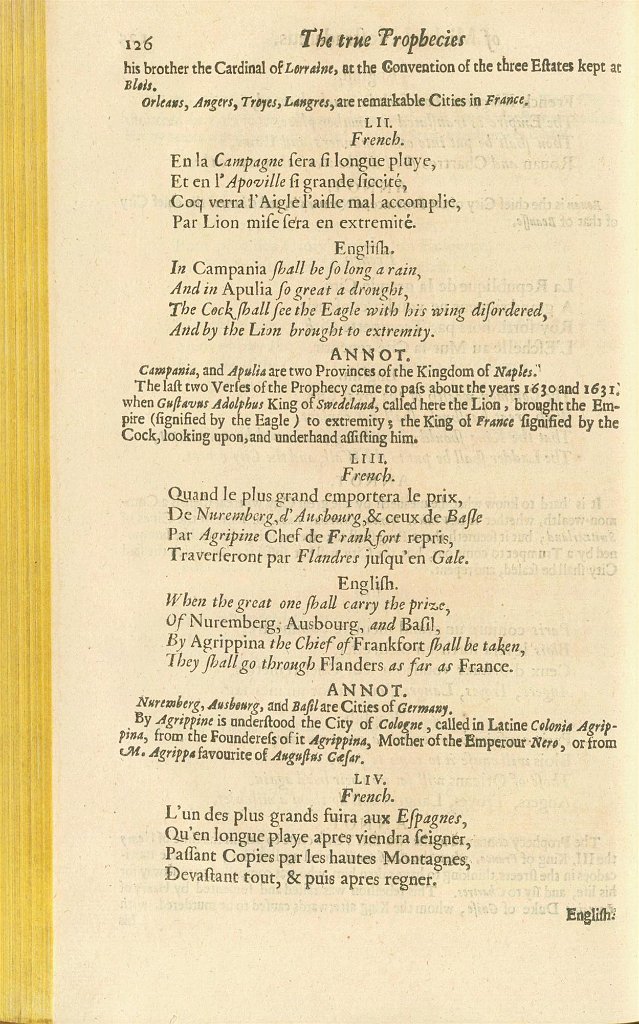 126 The true Prophecies
his brother the Cardinal of Lorraine, at the Convention of the three Eſtates kept at
Blois.
Orleans, Angers, Troyes, Langres, are remarkable Cities in France.
LII.
French.
En la Campagne ſera ſi longue pluye,
Et en l'Apoville ſi grande ſiccité,
Coq verra l'Aigle l'aiſle mal accomplie,
Par Lion miſe ſera en extremité.
Engliſh.
In Campania ſhall be ſo long a rain,
And in Apulia ſo great a drought,
The Cock ſhall ſee the Eagle with his wing diſordered,
And by the Lion brought to extremity.
ANNOT.
Campania, and Apulia are two Provinces of the Kingdom of Naples.
The laſt two Verſes of the Prophecy came to paſs about the years 1630 and 1631.
when Guſtavus Adolphus King of Swedeland, called here the Lion, brought the Em-
pire (ſignified by the Eagle) to extremity; the King of France ſignified by the
Cock, looking upon, and underhand aſſiſting him.
LIII.
French.
Quand le plus grand emportera le prix,
De Nuremberg, d'Ausbourg, & ceux de Baſle
Par Agripine Chef de Frankfort repris,
Traverſeront par Flandres juſqu'en Gale.
Engliſh.
When the great one ſhall carry the prize,
Of Nuremberg, Ausbourg, and Baſil,
By Agrippina the Chief of Frankfort ſhall be taken,
They ſhall go through Flanders as far as France.
ANNOT.
Nuremberg, Ausbourg, and Baſil are Cities of Germany.
By Agrippine is underſtood the City of Cologne, called in Latine Colonia Agrip-
pina, from the Foundereſs of it Agrippina, Mother of the Emperour Nero, or from
M. Agrippa favourite of Auguſtus Cæſar.
LIV.
French.
L'un des plus grands fuira aux Eſpagnes,
Qu'en longue playe apres viendra ſeigner,
Paſſant Copies par les hautes Montagnes,
Devaſtant tout, & puis apres regner.
Engliſh.